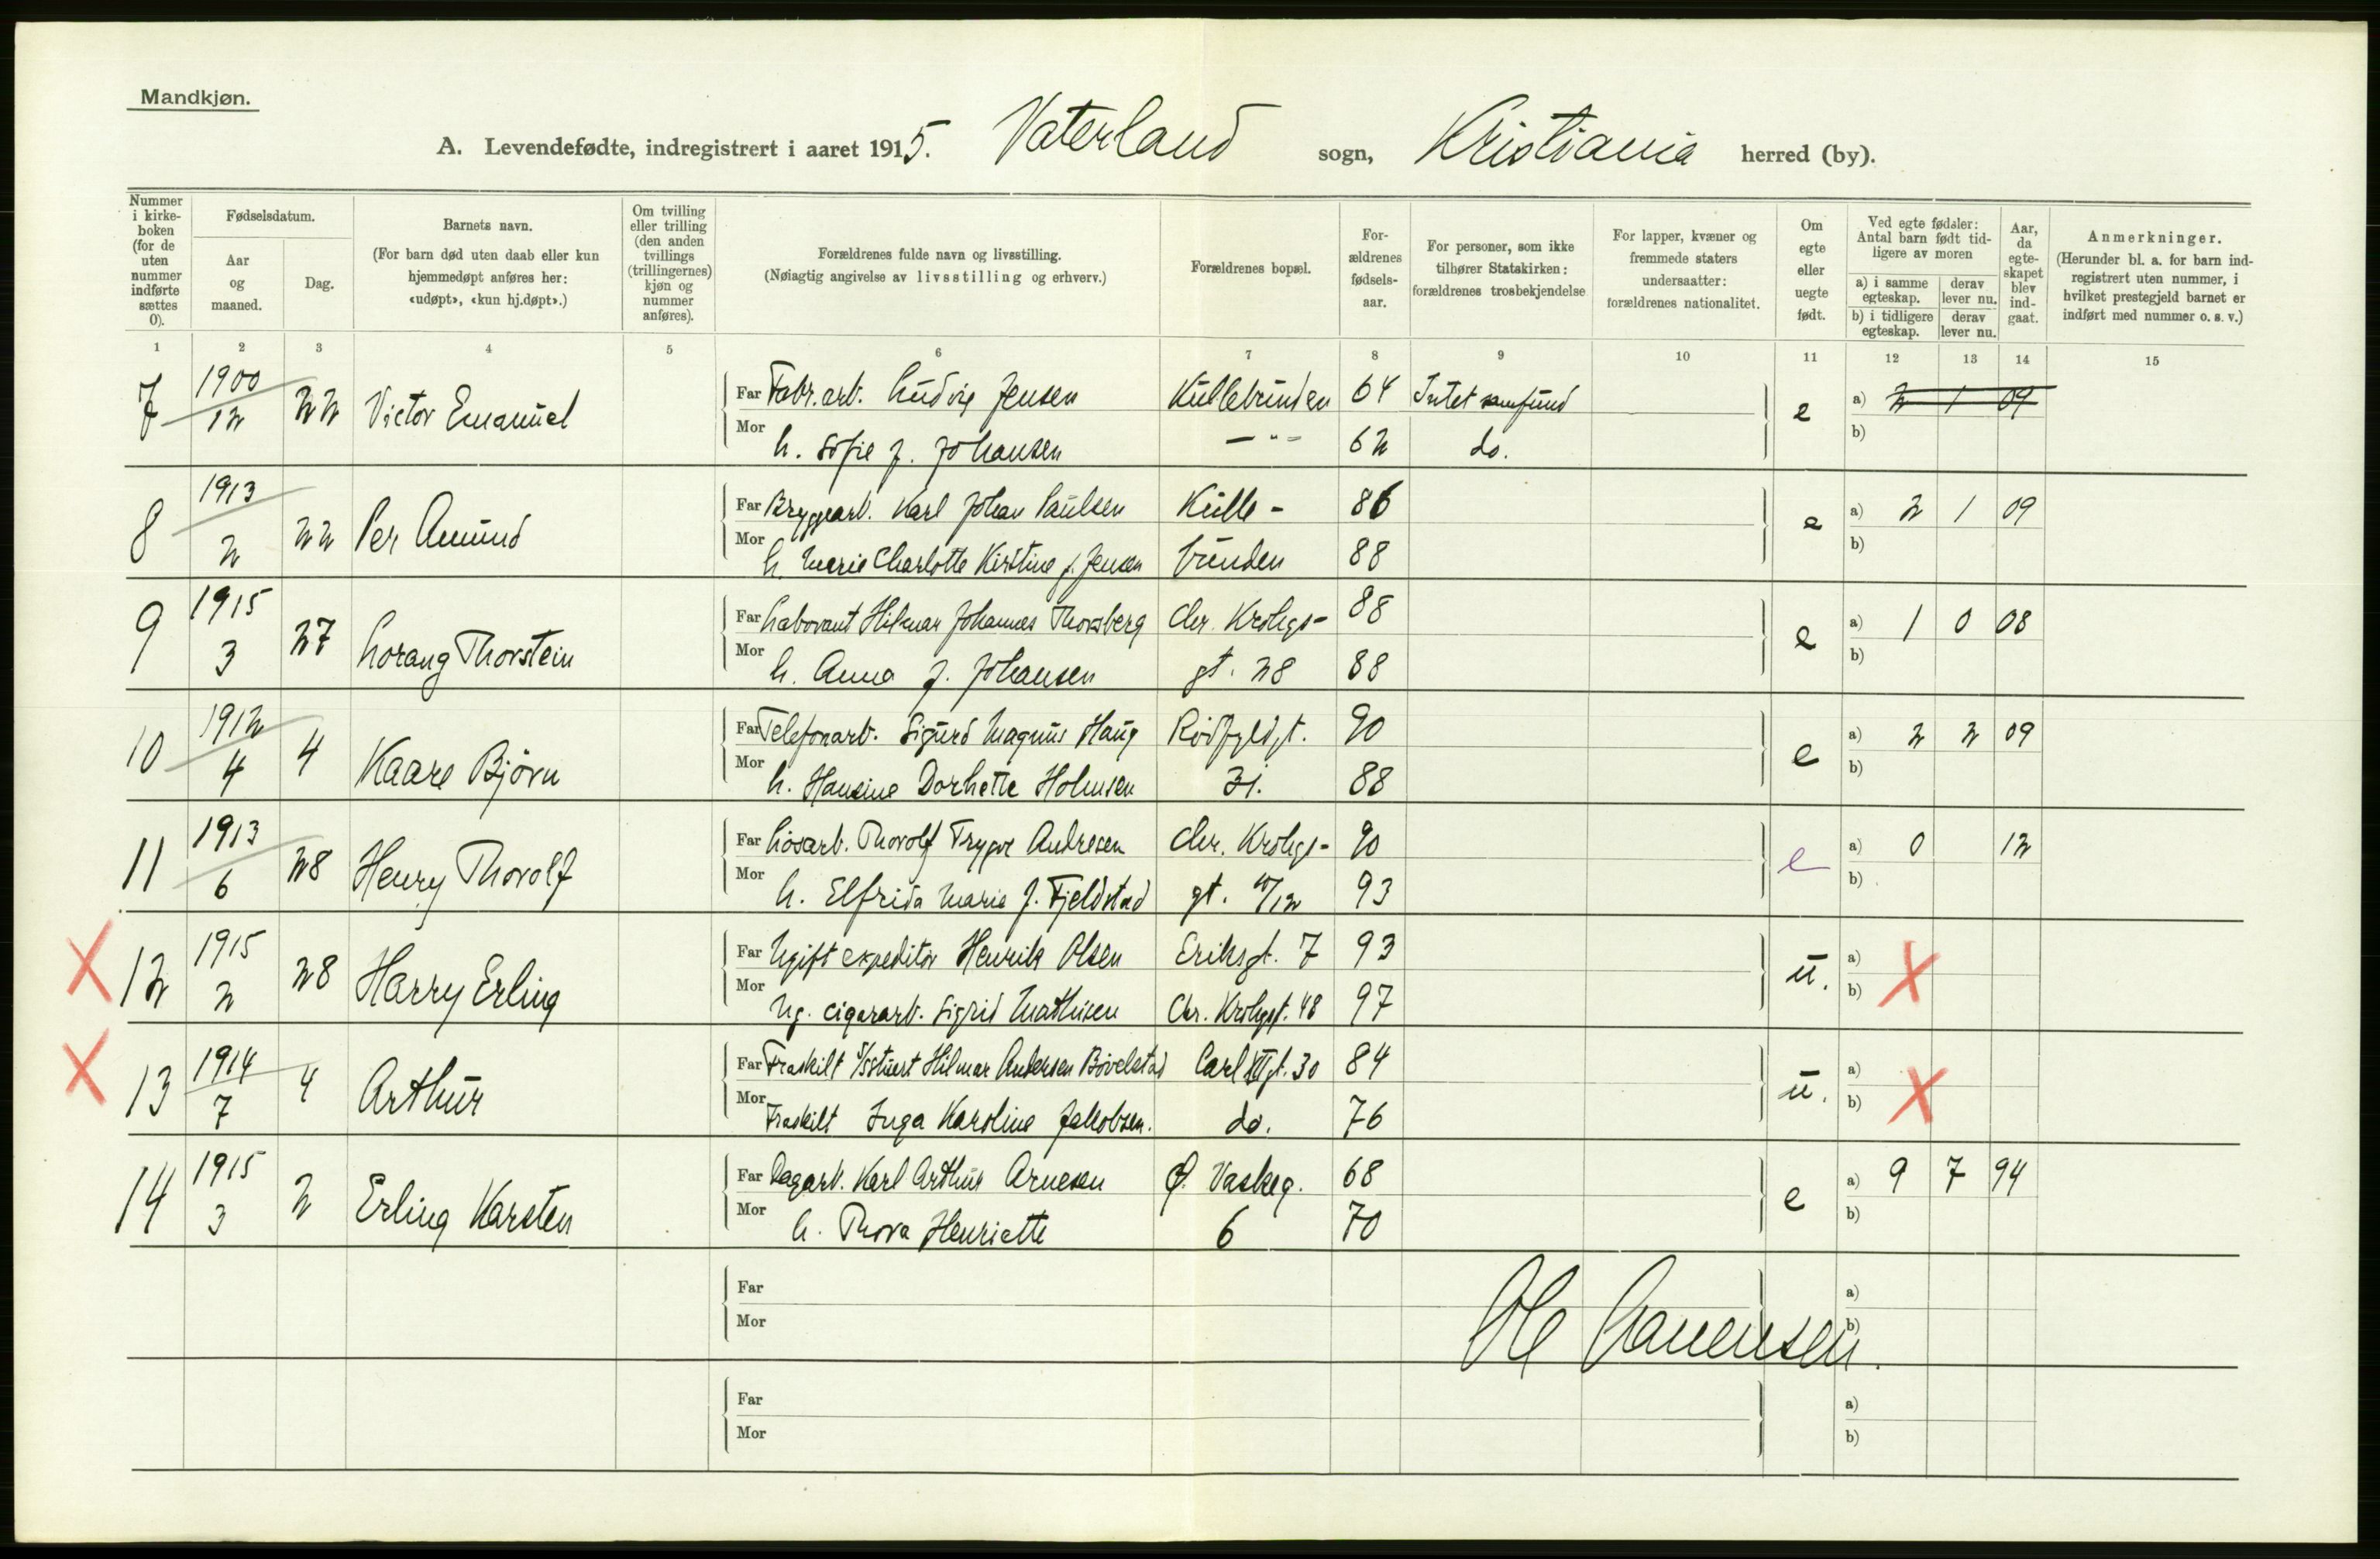 Mandkjøn.
A. Levendefødte, indregistrert i aaret 1915. Vaterland sogn, Kristiania herred (by).
Nummer i kirkeboken (for de uten nummer indførte sættes 0).
Fødselsdatum.
Aar og maaned.
Dag.
Barnets navn.
(For barn død uten daab eller kun hjemmedøpt anføres her: «udøpt», «kun hj.døpt».)
Om tvilling eller trilling (den anden tvillings (trillingernes) kjøn og nummer anføres).
Forældrenes fulde navn og livsstilling.
(Nøiagtig angivelse av livsstilling og erhverv.)
Forældrenes bopæl.
Forældrenes fødselsaar.
For personer, som ikke tilhører Statskirken: forældrenes trosbekjendelse
For lapper, kvæner og fremmede staters undersaatter: forældrenes nationalitet.
Om egte eller uegte født.
Ved egte fødsler: Antal barn født tidligere av moren
a) i samme egteskap. derav lever nu.
b) i tidligere egteskap. derav lever nu.
Aar, da egteskapet blev indgaat.
Anmerkninger.
(Herunder bl. a. for barn indregistrert uten nummer, i hvilket prestegjeld barnet er indført med nummer o. s. v.)
1 2 3 4 5 6 7 8 9 10 11 12 13 14 15
7 1900 12 22 Victor Emanuel
Far Fabr.arb. Ludvig Jensen Kullebunden 64 Intet samfund e a) 2 1 09
Mor h. Sofie f. Johansen — " — 62 do. b)
8 1913 2 22 Per Amund
Far Bryggearb. Karl Johan Paulsen Kulle- 86 e a) 2 1 09
Mor h. Marie Charlotte Kirstine f. Jensen bunden 88 b)
9 1915 3 27 Lorang Thorstein
Far Laborant Hilmar Johannes Thorsberg Chr. Krohgs- 88 e a) 1 0 08
Mor h. Anna f. Johansen gt. 28 88 b)
10 1912 4 4 Kaare Bjørn
Far Telefonarb. Sigurd Magnus Haug Rødfyldgt. 90 e a) 2 2 09
Mor h. Hansine Dorhette Holmsen 31. 88 b)
11 1913 6 28 Henry Thorolf
Far Løsarb. Thorolf Trygve Andresen Chr. Krohgs- 90 e a) 0 12
Mor h. Elfrida Marie f. Fjeldstad gt. 93 b)
12 1915 2 28 Harry Erling
Far Ugift expeditør Henrik Olsen Eriksgt. 7 93 u. a)
Mor Ug. cigararb. Sigrid Mathisen Chr. Krohgsgt. 48 97 b)
13 1914 7 4 Arthur
Far Fraskilt Hilmar Andersen Bøvelstad Carl XII gt. 30 84 u. a)
Mor Fraskilt Inga Karoline Jakobsen. do. 76 b)
14 1915 3 2 Erling Karsten
Far Dagarb. Karl Arthur Arnesen Ø. Vaskeg. 68 e a) 9 7 94
Mor h. Thora Henriette 6 70 b)
Far a)
Mor b)
Ole
Far a)
Mor b)